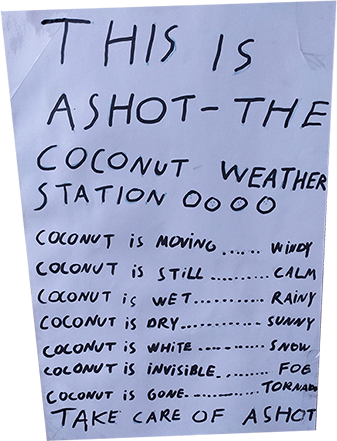 THIS IS
ASHOT-THE
COCONUT WEATHER
STATION OOOO
COCONUT is MOVING ...... WINDY
COCONUT is STILL .......... CALM
COCONUT is WET........... RAINY
COCONUT is DRY............ SUNNY
COCONUT is WHITE .......... SNOW
COCONUT is INVISIBLE ......... FOG
COCONUT is GONE......... TORNADO
TAKE CARE OF ASHOT